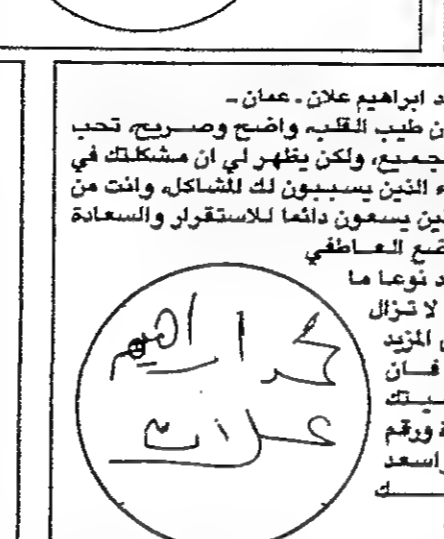 د ابراهيم علان ـ عمان ـ
ن طيب القلب، واضح وصريح، تحب
لجميع، ولكن يظهر لي ان مشكلتك في
ء الذين يسببون لك المشاكل، وانت من
ين يسعون دائما للاستقرار والسعادة
ضع العاطفي
د نوعا ما
لا تزال
المزيد
فان
ـيتك
ة ورقم
اسعد
ـك
ابراهيم
علان